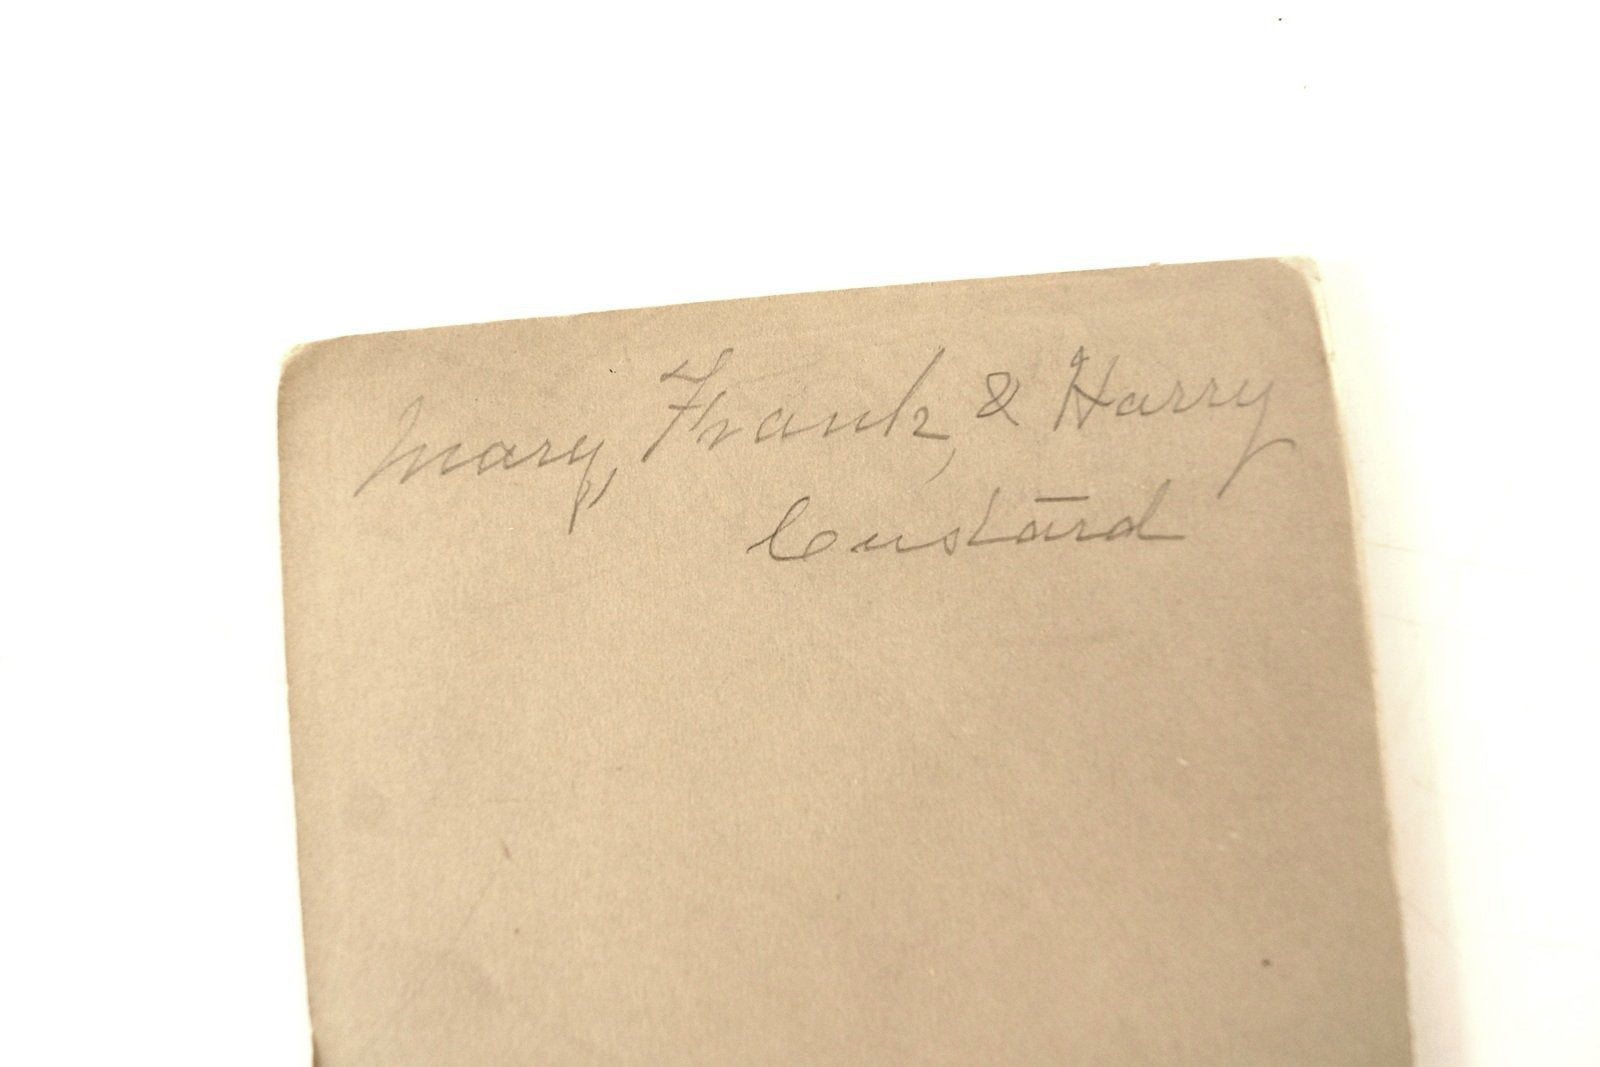 Mary, Frank, & Harry
Custard